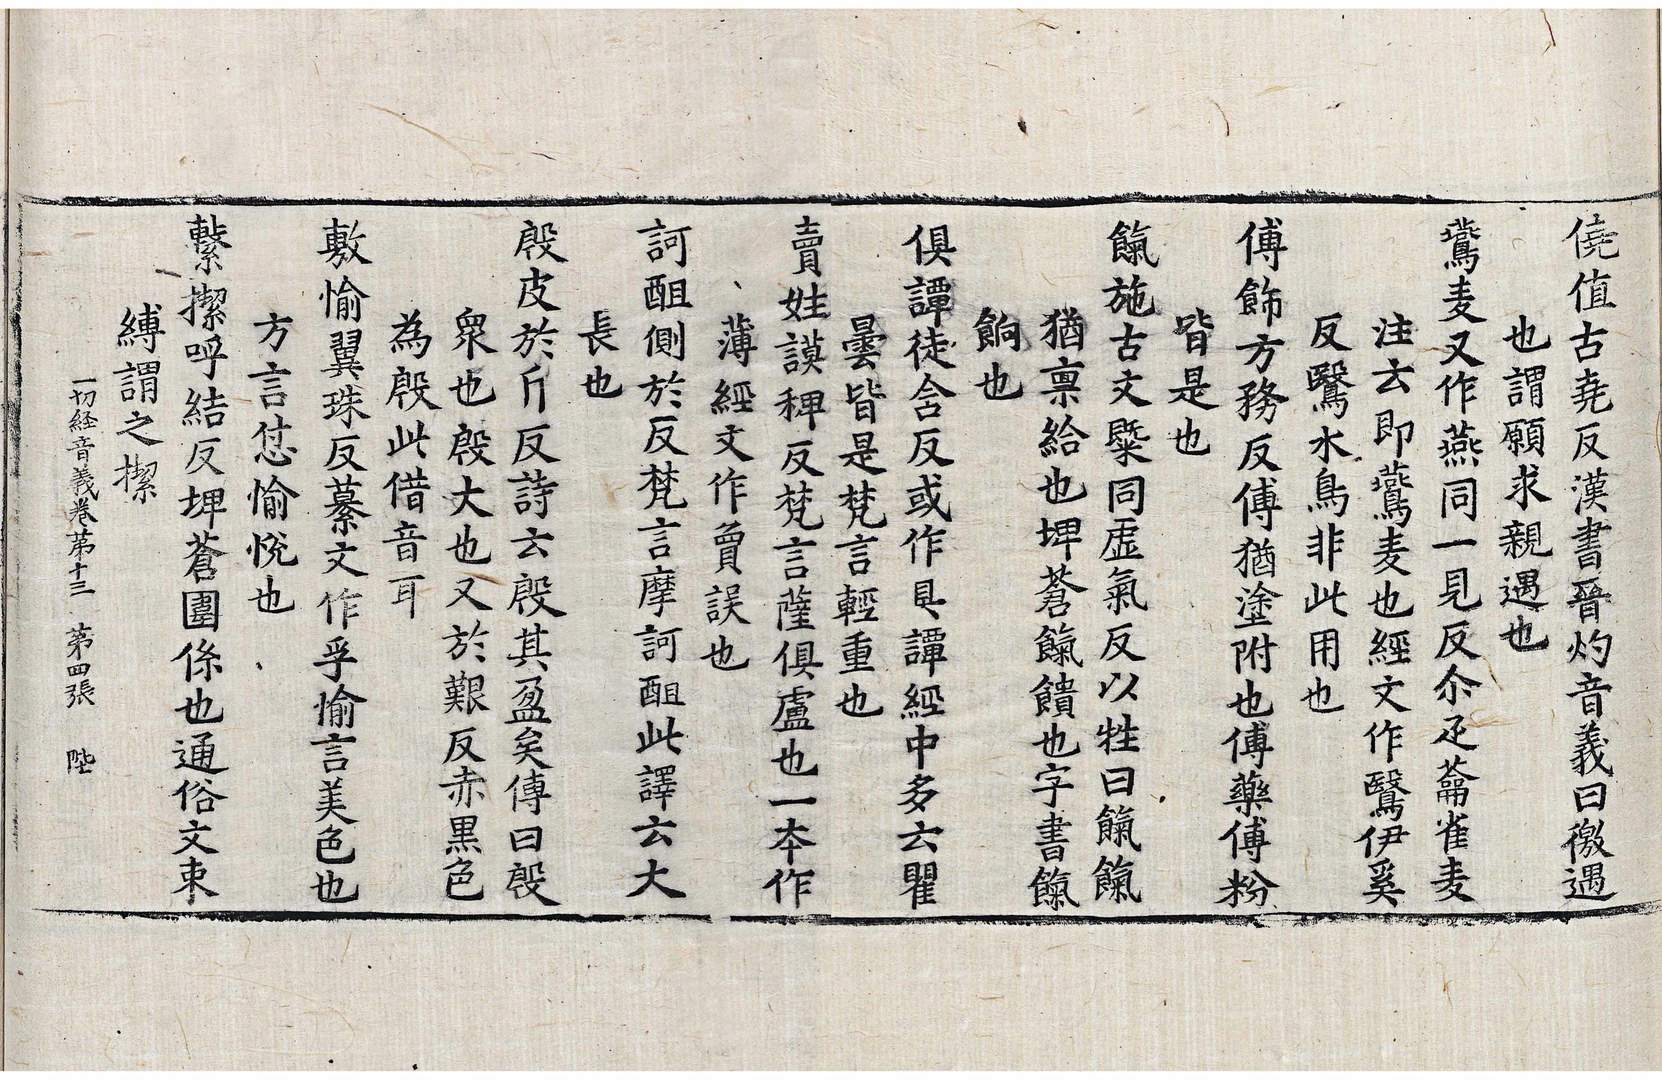 僥值古堯反漢書晉灼音義曰徼遇
也謂願求親遇也
鷰麦又作燕同一見反尒疋蕭雀麦
注云即鷰麦也經文作鷖伊奚
反鷖水鳥非此用也
傅飾方務反傅猶塗附也傅藥傅粉
皆是也
餼施古文槩同虛氣反以牲曰餼餼
猶禀給也埤蒼餼饋也字書餼
餉也
俱譚徒含反或作具譚經中多云瞿
曇皆是梵言輕重也
賣姓謨稗反梵言薩俱盧也一本作
薄經文作賣誤也
訶䣯側於反梵言摩訶䣯此譯云大
長也
殷皮於斤反詩云殷其盈矣傳曰殷
衆也殷大也又於艱反赤黒色
為殷此借音耳
敷愉翼珠反纂文作孚愉言美色也
方言怤愉悅也
繫㨼呼結反埤蒼圍係也通俗文束
縛謂之㨼
一切経音義卷第十三 第四張 陛